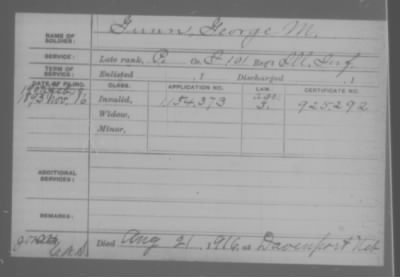 NAME OF SOLDIER: George M.
SERVICE: Late rank, Co. F 101 Reg't Ill. Inf.
TERM OF SERVICE: Enlisted , 1 Discharged , 1
DATE OF FILING. CLASS. APPLICATION NO. LAW. CERTIFICATE NO.
1893 Nov. 16 Invalid, 1,154,373 925292
Widow,
Minor,
ADDITIONAL SERVICES:
REMARKS:
Died Aug 21, 1916, at Davenport Neb